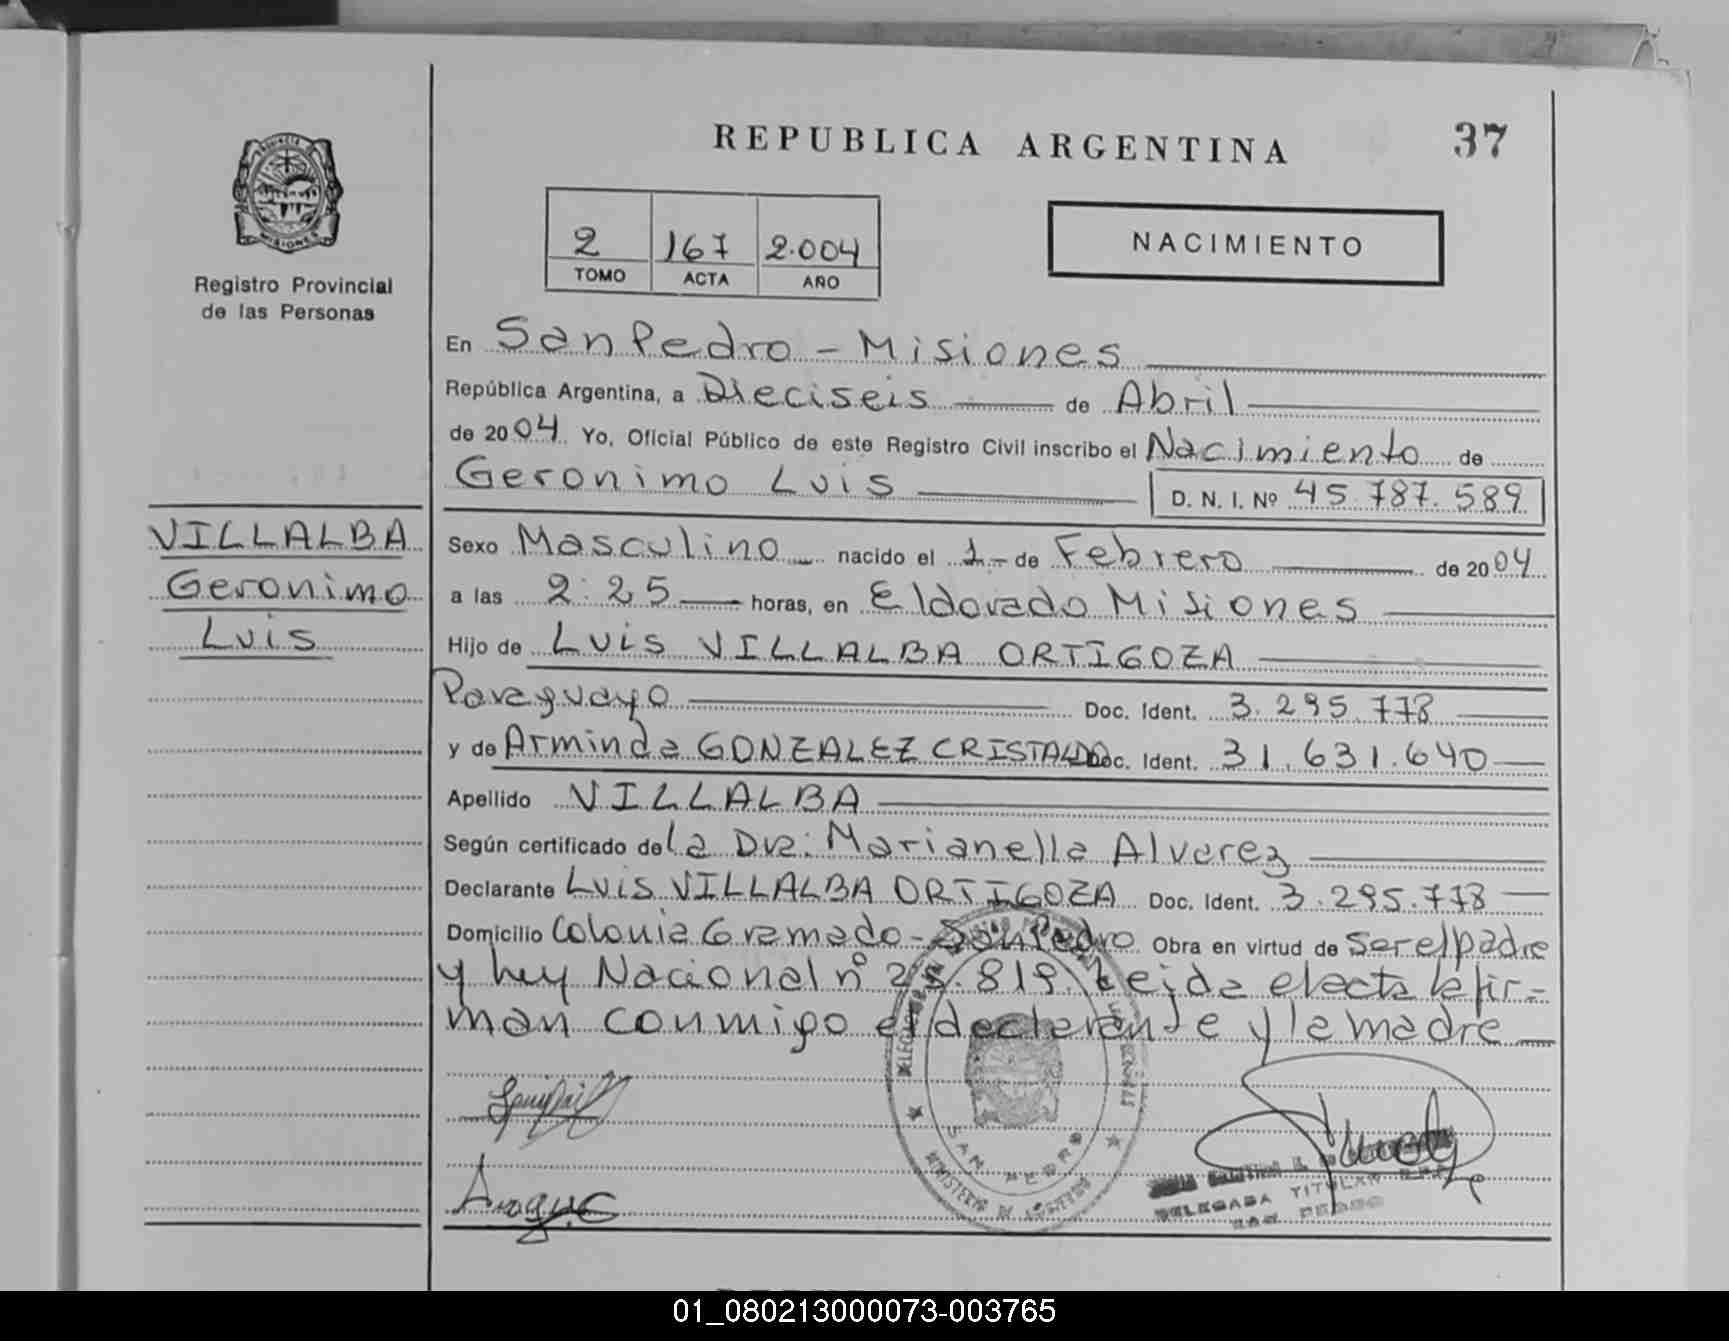 REPUBLICA ARGENTINA
37
PROVINCIA
MISIONES
Registro Provincial
de las Personas
2 167 2.004
TOMO ACTA AÑO
NACIMIENTO
En San Pedro - Misiones
República Argentina, a Dieciseis de Abril
de 2004 Yo, Oficial Público de este Registro Civil inscribo el Nacimiento de
Geronimo Luis D. N. I. Nº 45.787.589
VILLALBA
Geronimo
Luis
Sexo Masculino nacido el 1- de Febrero de 2004
a las 2:25 horas, en Eldorado Misiones
Hijo de Luis VILLALBA ORTIGOZA
Paraguayo Doc. Ident. 3.295.778
y de Arminda GONZALEZ CRISTALDO Doc. Ident. 31.631.640
Apellido VILLALBA
Según certificado de la Dra: Marianella Alvarez
Declarante Luis VILLALBA ORTIGOZA Doc. Ident. 3.295.778
Domicilio Colonia Gramado - San Pedro Obra en virtud de Ser el padre
y ley Nacional nº 25.819. Leida el acta la fir-
man conmigo el declarante y la madre
SAN PEDRO
DELEGADA TITULAR
SAN PEDRO
01_080213000073-003765